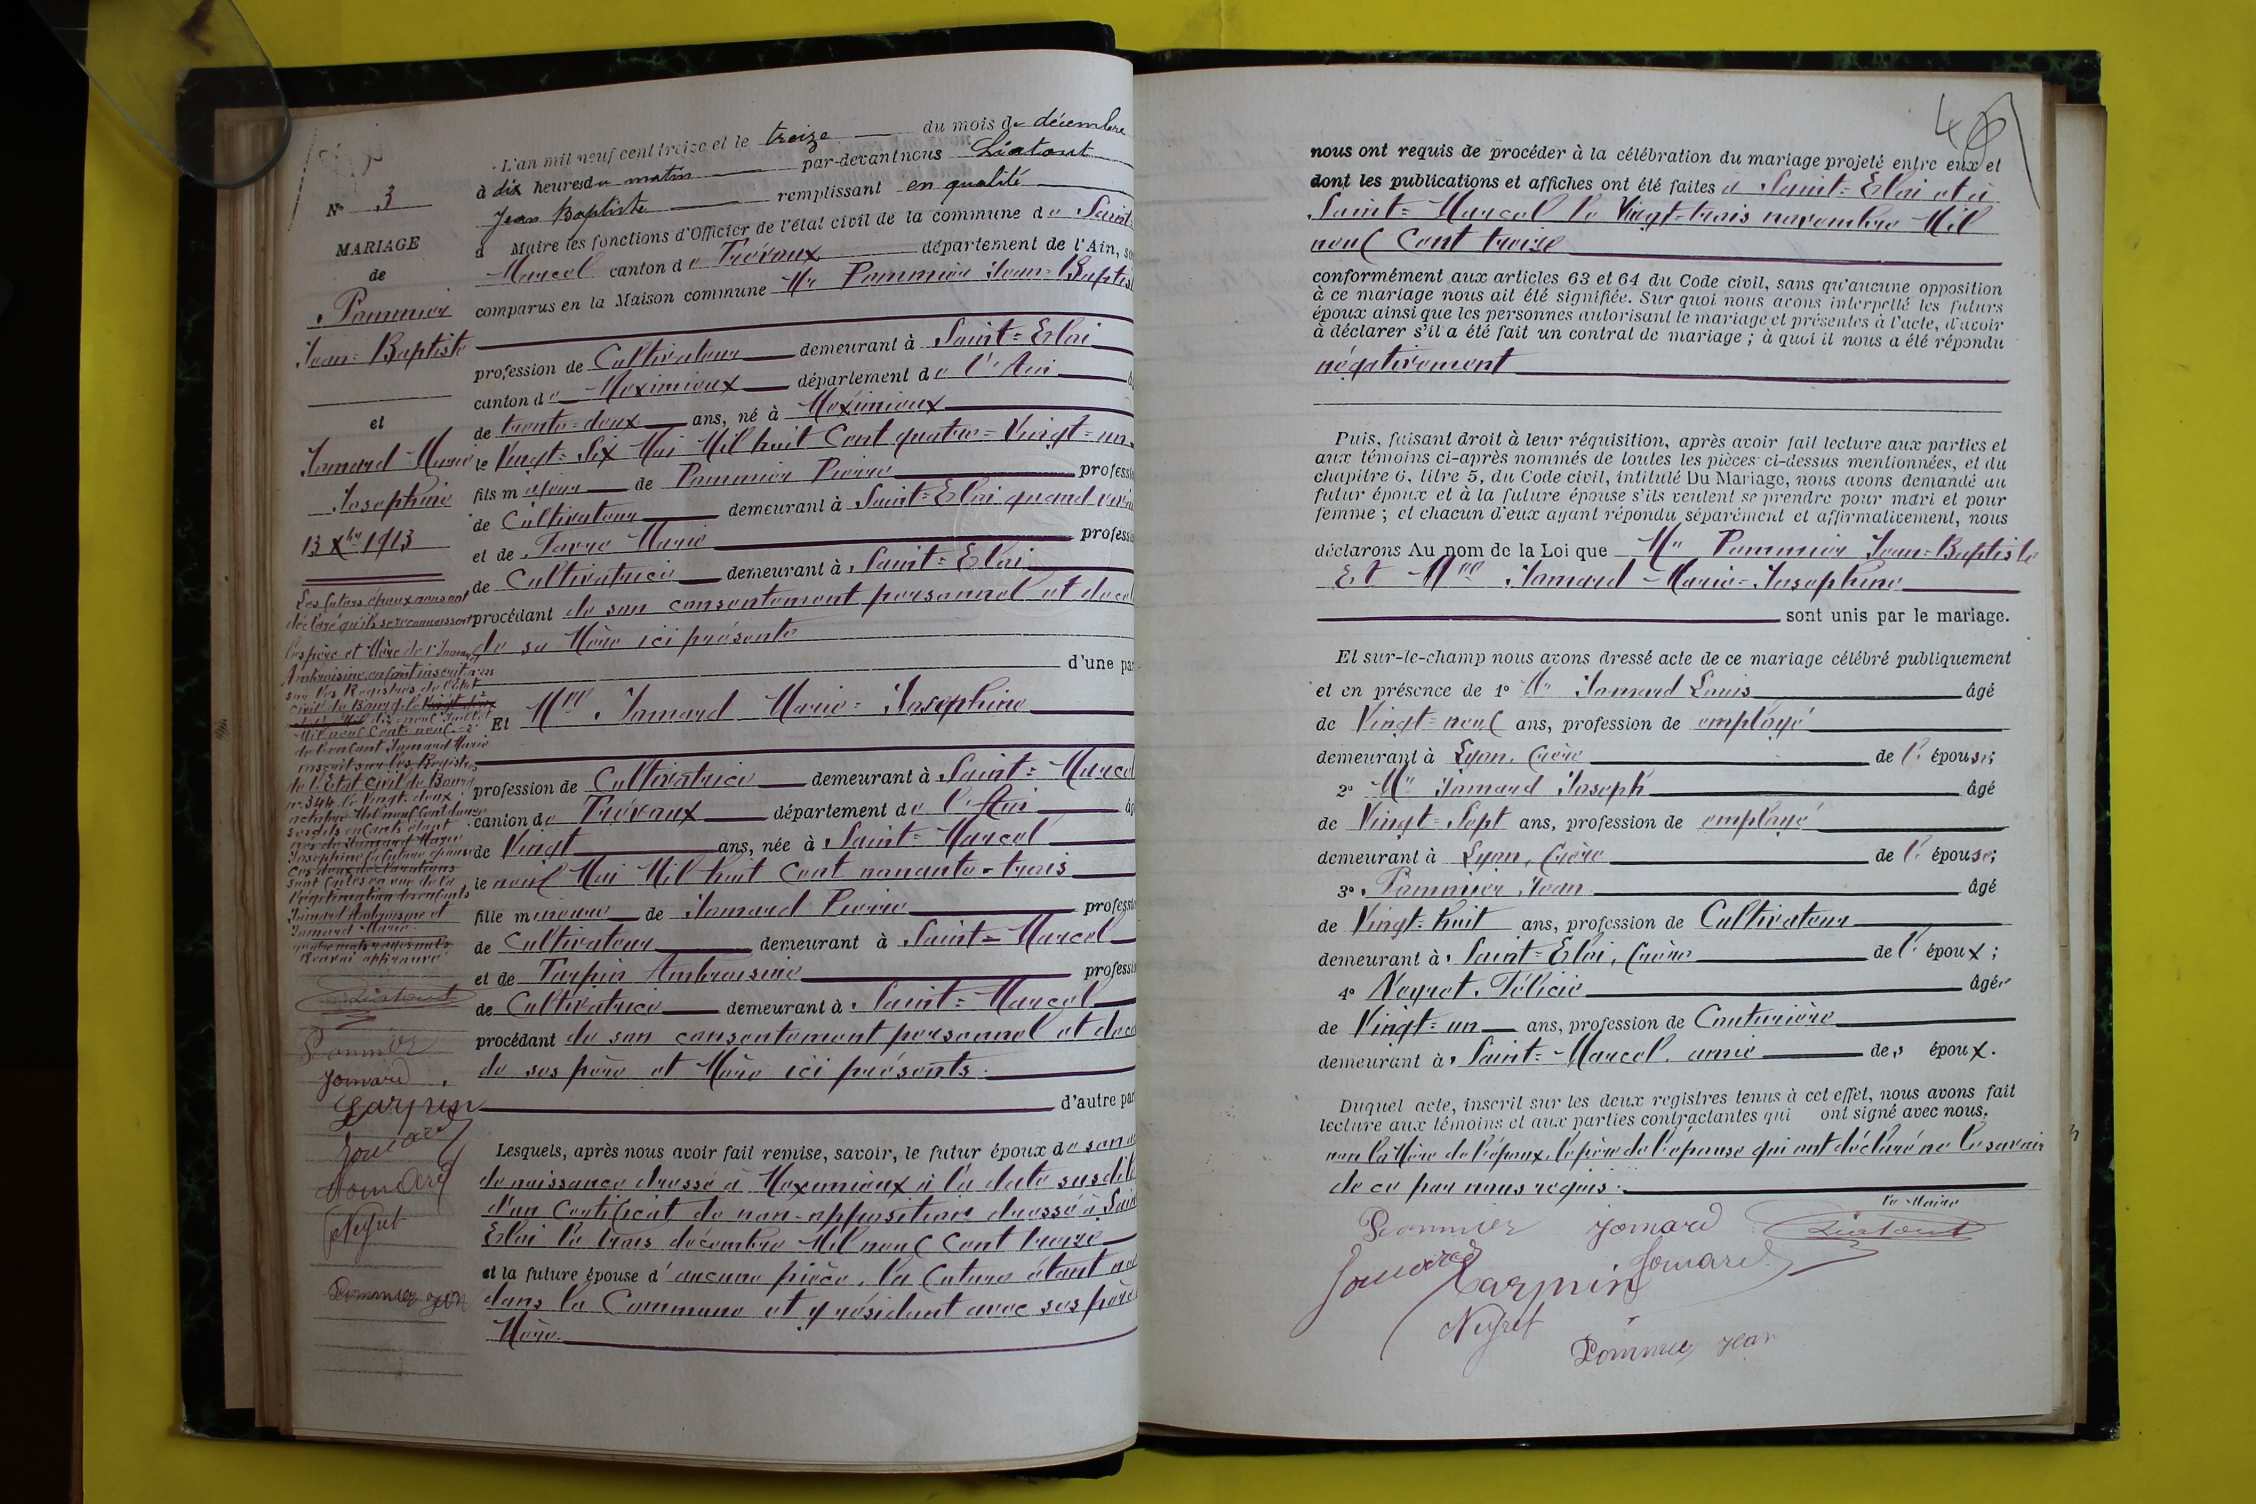 N° 3
MARIAGE
de
Pommier
Jean=Baptiste
et
Jomard Marie
Josephine
13 Xbre 1913
Les futurs époux nous ont
déclaré qu'ils se reconnaissent
les père et Mère de 1° Jomard
Ambroisine enfant inscrite
sur les Registres de l'Etat
civil de Bourg le
dix neuf Juillet
Mil neuf Cent neuf = 2°
de l'enfant Jomard Marie
inscrit sur les Registres
de l'Etat civil de Bourg
n° 344 le Vingt deux
octobre Mil neuf Cent douze
Josephine la future épouse
Ces deux déclarations
sont faites en vue de la
légitimation des enfants
Jomard Ambroisine et
Jomard Marie
Liatout
Pommier
Jomard
Tarpin
Jomard
Jomard
Neyret
Pommier Jean
L'an mil neuf cent treize et le treize du mois de décembre
à dix heures du matin par-devant nous Liatout
Jean Baptiste remplissant en qualité
d Maire les fonctions d'Officier de l'état civil de la commune de Saint=
Marcel canton de Trévoux département de l'Ain, so
comparus en la Maison commune Mr Pommier Jean=Baptist
profession de Cultivateur demeurant à Saint=Eloi
canton de Meximieux département de l'Ain âg
de trente=deux ans, né à Meximieux
le Vingt=Six Mai Mil huit Cent quatre=Vingt=un
fils majeur de Pommier Pierre professi
de Cultivateur demeurant à Saint=Eloi quand vivai
et de Favre Marie professi
de Cultivatrice demeurant à Saint=Eloi
procédant de son consentement personnel et de cel
de sa Mère ici présente
d'une par
Et Mlle Jomard Marie=Josephine
profession de Cultivatrice demeurant à Saint=Marcel
canton de Trévoux département de l'Ain âg
de Vingt ans, née à Saint=Marcel
le neuf Mai Mil huit Cent nonante=trois
fille mineure de Jomard Pierre professi
de Cultivateur demeurant à Saint=Marcel
et de Tarpin Ambroisine professi
de Cultivatrice demeurant à Saint=Marcel
procédant de son consentement personnel et de ce
de ses père et Mère ici présents.
d'autre par
Lesquels, après nous avoir fait remise, savoir, le futur époux de son a
de naissance dressé à Meximieux à la date susdite
d'un Certificat de non-opposition dressé à Saint
Eloi le trois décembre Mil neuf Cent treize
et la future épouse d'aucune pièce, la future étant né
dans la Commune et y résidant avec ses père
Mère.
40
nous ont requis de procéder à la célébration du mariage projeté entre eux et
dont les publications et affiches ont été faites à Saint=Eloi et à
Saint=Marcel le Vingt=trois novembre Mil
neuf Cent treize
conformément aux articles 63 et 64 du Code civil, sans qu'aucune opposition
à ce mariage nous ait été signifiée. Sur quoi nous avons interpellé les futurs
époux ainsi que les personnes autorisant le mariage et présentes à l'acte, d'avoir
à déclarer s'il a été fait un contrat de mariage ; à quoi il nous a été répondu
négativement
Puis, faisant droit à leur réquisition, après avoir fait lecture aux parties et
aux témoins ci-après nommés de toutes les pièces ci-dessus mentionnées, et du
chapitre 6, titre 5, du Code civil, intitulé Du Mariage, nous avons demandé au
futur époux et à la future épouse s'ils veulent se prendre pour mari et pour
femme ; et chacun d'eux ayant répondu séparément et affirmativement, nous
déclarons Au nom de la Loi que Mr Pommier Jean=Baptiste
Et Mlle Jomard Marie=Josephine
sont unis par le mariage.
Et sur-le-champ nous avons dressé acte de ce mariage célébré publiquement
et en présence de 1° Mr Jomard Louis âgé
de Vingt=neuf ans, profession de employé
demeurant à Lyon, frère de l' épouse;
2° Mr Jomard Joseph âgé
de Vingt=Sept ans, profession de employé
demeurant à Lyon, frère de l' épouse;
3° Pommier Jean âgé
de Vingt=huit ans, profession de Cultivateur
demeurant à Saint=Eloi, frère de l' époux;
4° Neyret Félicie âgée
de Vingt=un ans, profession de Couturière
demeurant à Saint=Marcel, amie des époux.
Duquel acte, inscrit sur les deux registres tenus à cet effet, nous avons fait
lecture aux témoins et aux parties contractantes qui ont signé avec nous,
non la Mère de l'époux, le père de l'épouse qui ont déclaré ne le savoir
de ce par nous requis.
le Maire
Pommier Jomard Liatout
Jomard Tarpin Jomard
Neyret
Pommier Jean